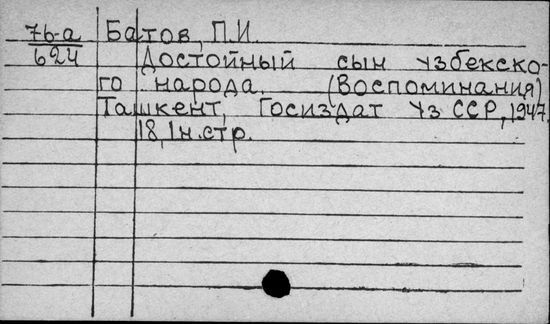 76-а Батов, П.И.
624 Достойный сын узбекско-
го народа. (Воспоминания)
Ташкент, Госиздат УзССР, 1947.
18, 1 н. стр.